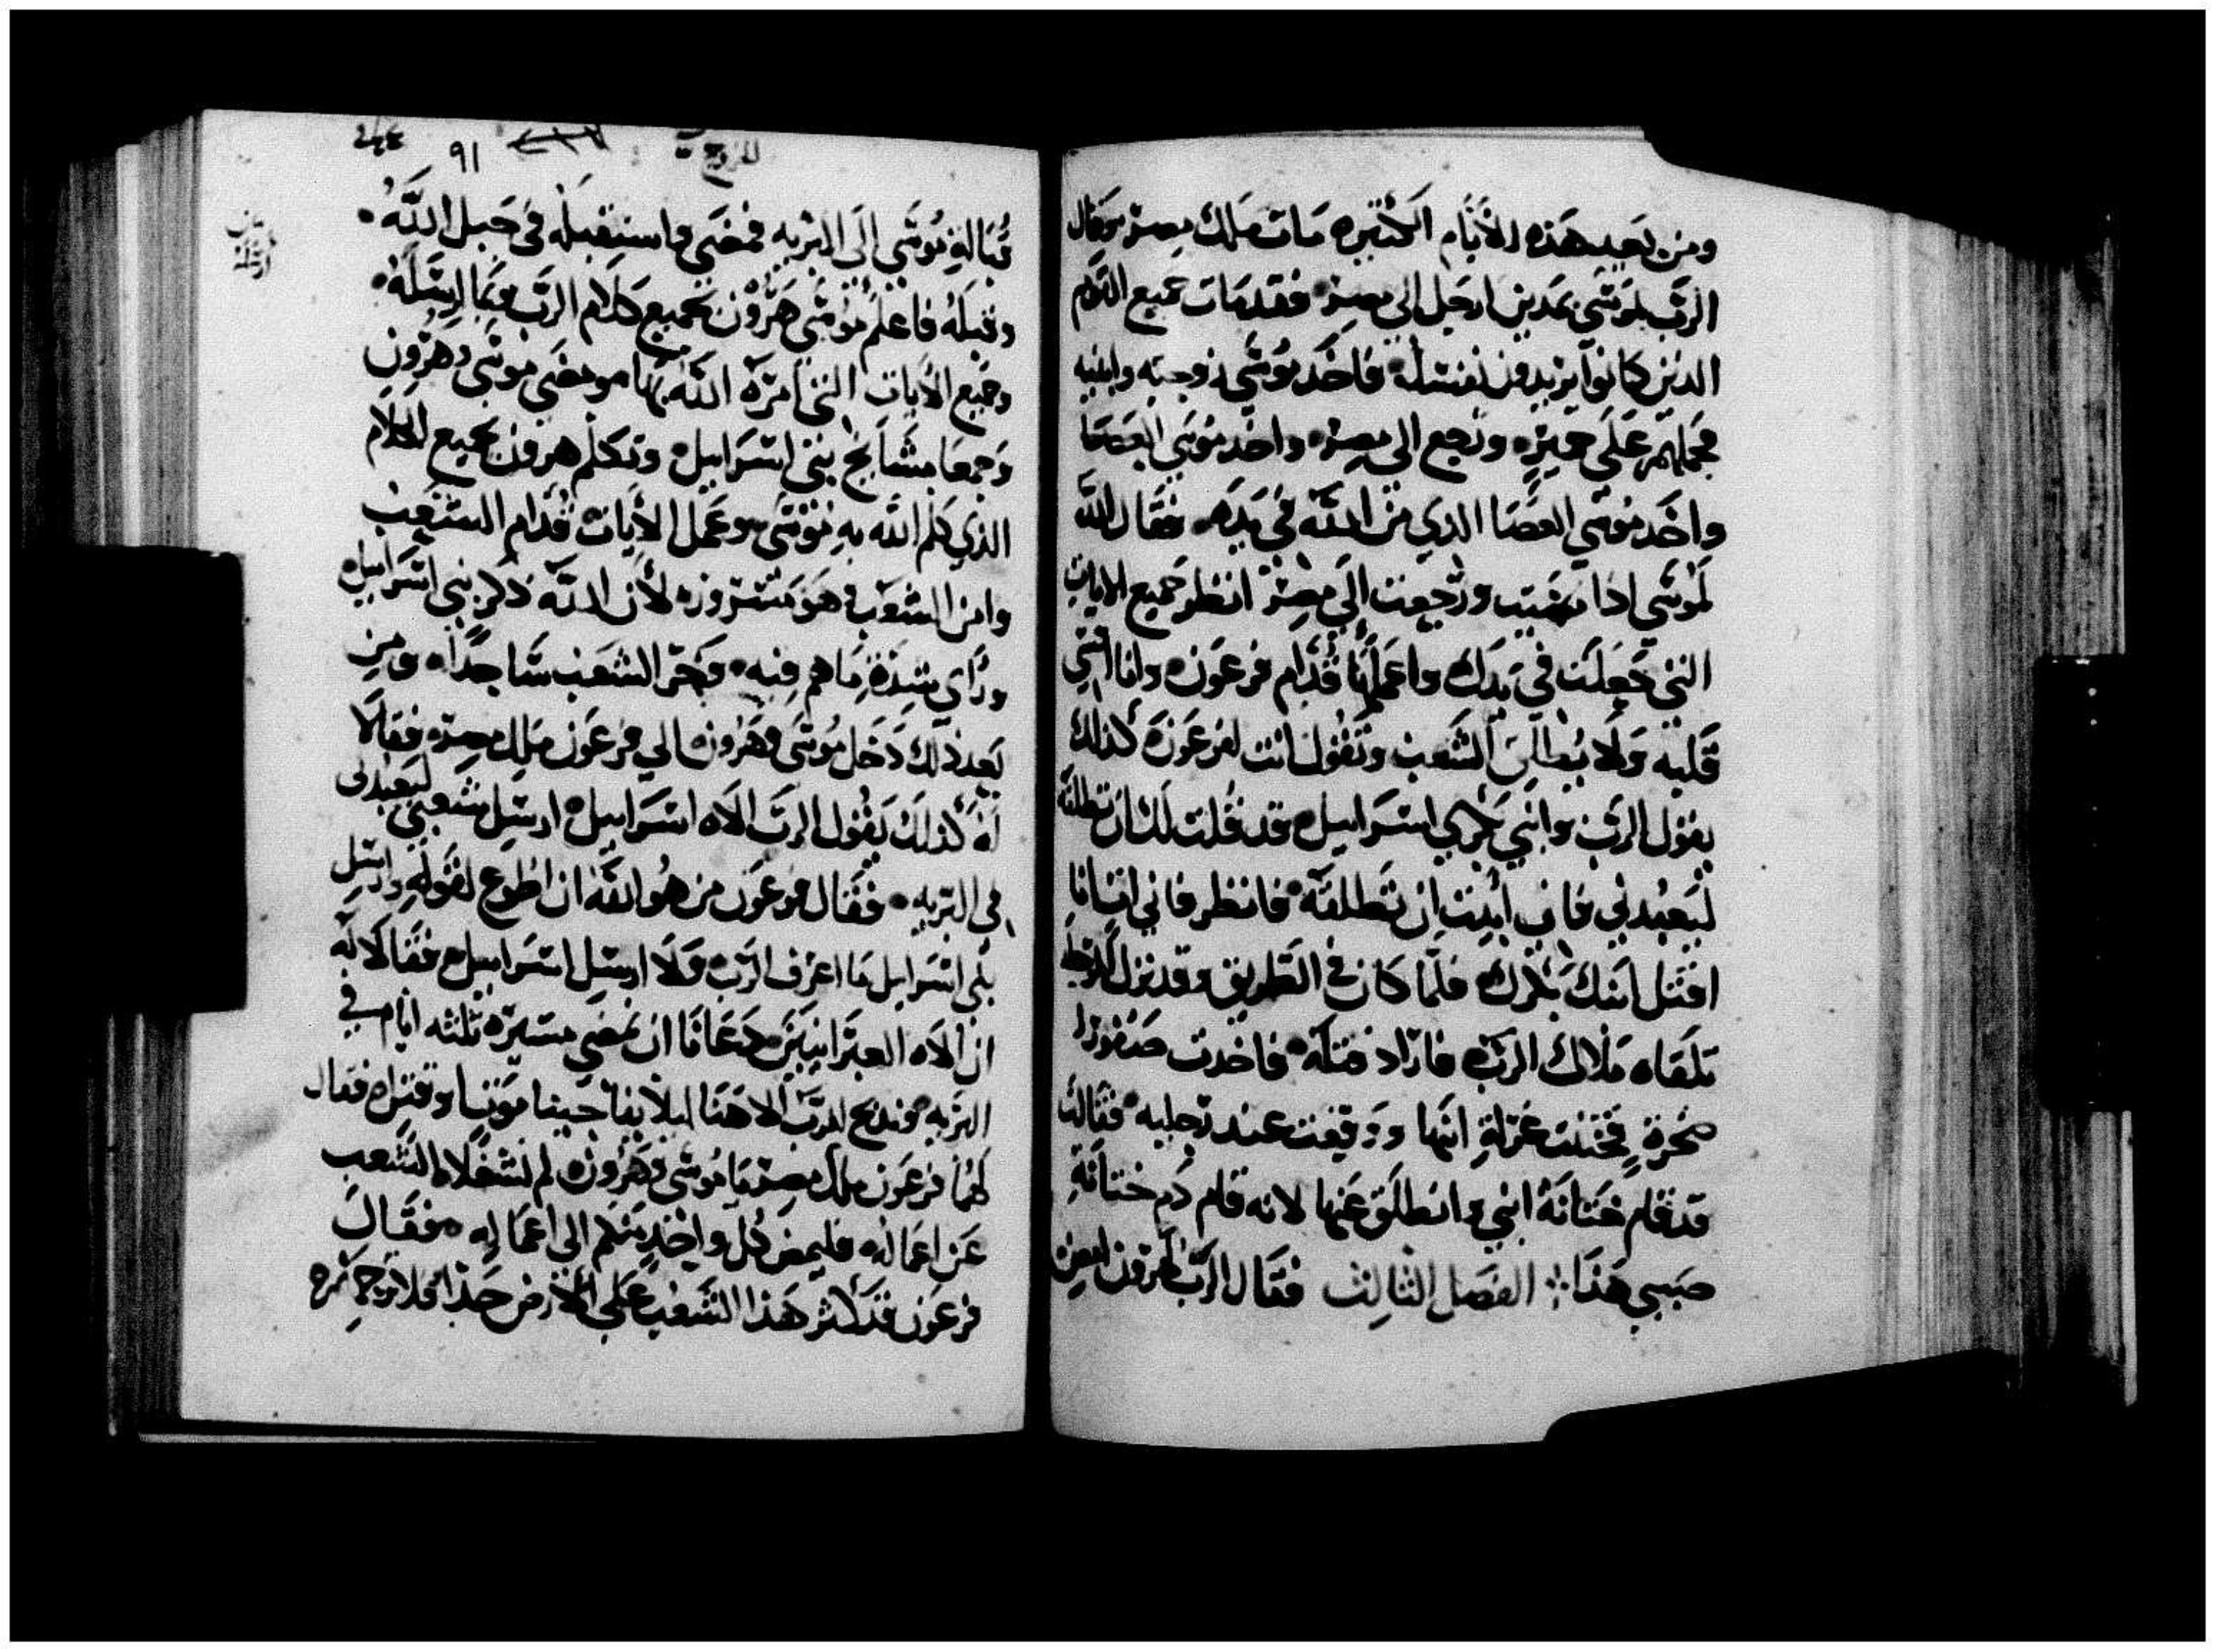 ومن بعد هذه الأيام الكتيره مات ملك مصر وقال
الرب لموسى بمدين ارحل الي مصر فقد مات جميع القوم
الدين كانوا يريدون نفسك فاخد موسى زوجته وابنيه
فحملهم على حميره ورجع الي مصر واخد موسى العصا
واخد موسى العصا الدي من الله في يده فقال الله
لموسى ادا مضيت ورجعت الى مصر انظر جميع الايات
التي جعلت في يدك واعملها قدام فرعون وانا اقسي
قلبه ولا يطلق الشعب وتقول انت لفرعون كذلك
يقول الرب وابني بكري اسراييل قد قلت لك ان تطلقه
ليعبدني فان ابيت ان تطلقه فانظر فاني انا
اقتل ابنك بكرك فلما كان في الطريق وقد نزل
تلقاه ملاك الرب فاراد قتله فاخدت صفورا
صخرة فختنت غرلة ابنها ووقعت عند رجليه فقالت
قد قام ختانة ابني وانطلق عنها لانه قام دم ختانة
صببي هذا الفصل الثالث فقال الرب لهرون امض
قبالة موسى الى البريه فمضى واستقبله في جبل الله
وقبله فاعلم موسى هرون بجميع كلام الرب وبما ارسله
وجميع الايات التي امره الله بها ومضى موسى وهرون
وجمعا مشايخ بني اسراييل وتكلم هرون بجميع الكلام
الذي كلم الله به موسى وعمل الايات قدام الشعب
وامن الشعب وهو مسرور لأن الله ذكر بني اسراييل
وراى شدة ما هم فيه وخر الشعب ساجدا ومن
بعد ذلك دخل موسى وهرون الي فرعون ملك مصر فقالا
له كذلك يقول الرب الاه اسراييل ارسل شعبي ليعبدني
في البريه فقال فرعون من هو الله ان اطوع لقوله وارسل
بني اسراييل ما اعرف الرب ولا ارسل اسراييل فقالا له
ان الاه العبرانيين دعانا ان نمضي مسيرة ثلثه ايام في
البريه وندبح للرب الاهنا ليلا يفاجينا موتا وقتلا فقال
لهما فرعون ملك مصر يا موسى وهرون لم تشغلا الشعب
عن اعماله فليمض كل واحد منكم الى اعماله فقال
فرعون قد كثر هذا الشعب على الارض جدا فلا
٩١